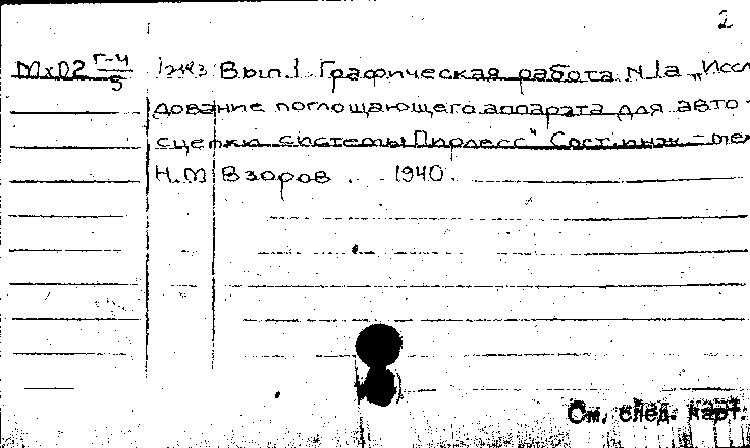 2
МхО2 Г-4/5 1экз Вып.1 Графическая работа N 1а „Иссл
дование поглощающего аппарата для авто-
сцепки системы Пирлесс" Сост. инж.-тех
Н.М Взоров. 1940.
См. след. карт.